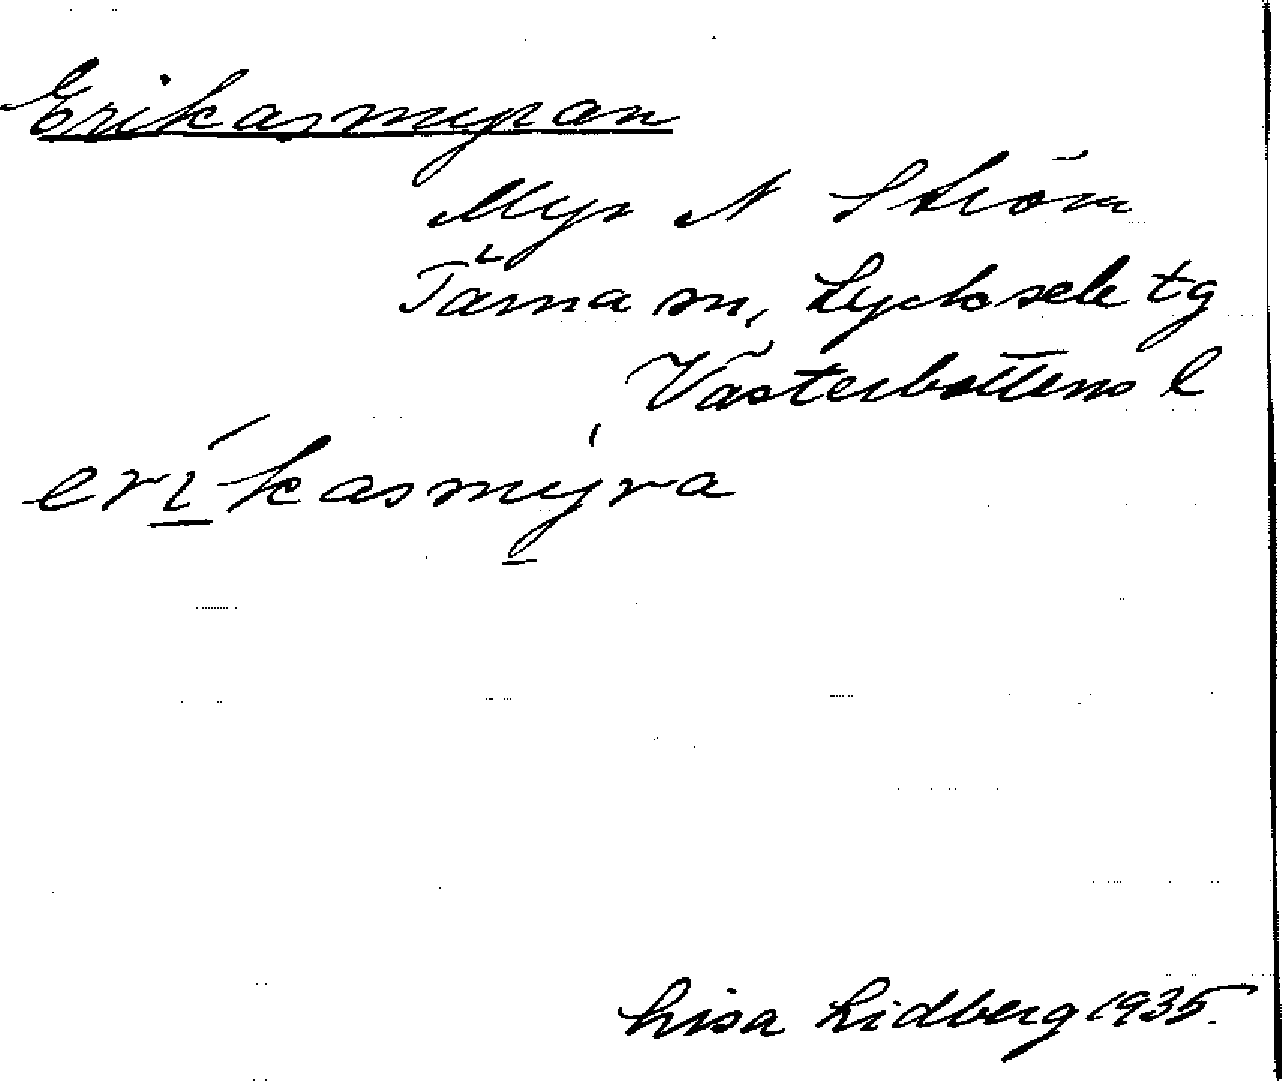 Erikasmyran
Myr N Ström
Tärna sn, Lycksele tg
Västerbottens l
erı̲́kasmỳ̲ra
Lisa Lidberg 1935.